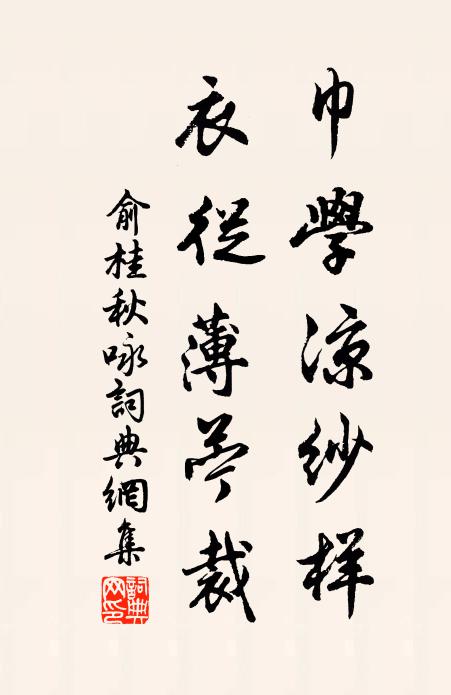 巾學涼紗样
衣從薄苧裁
俞桂秋咏詞典網集
詞典网印